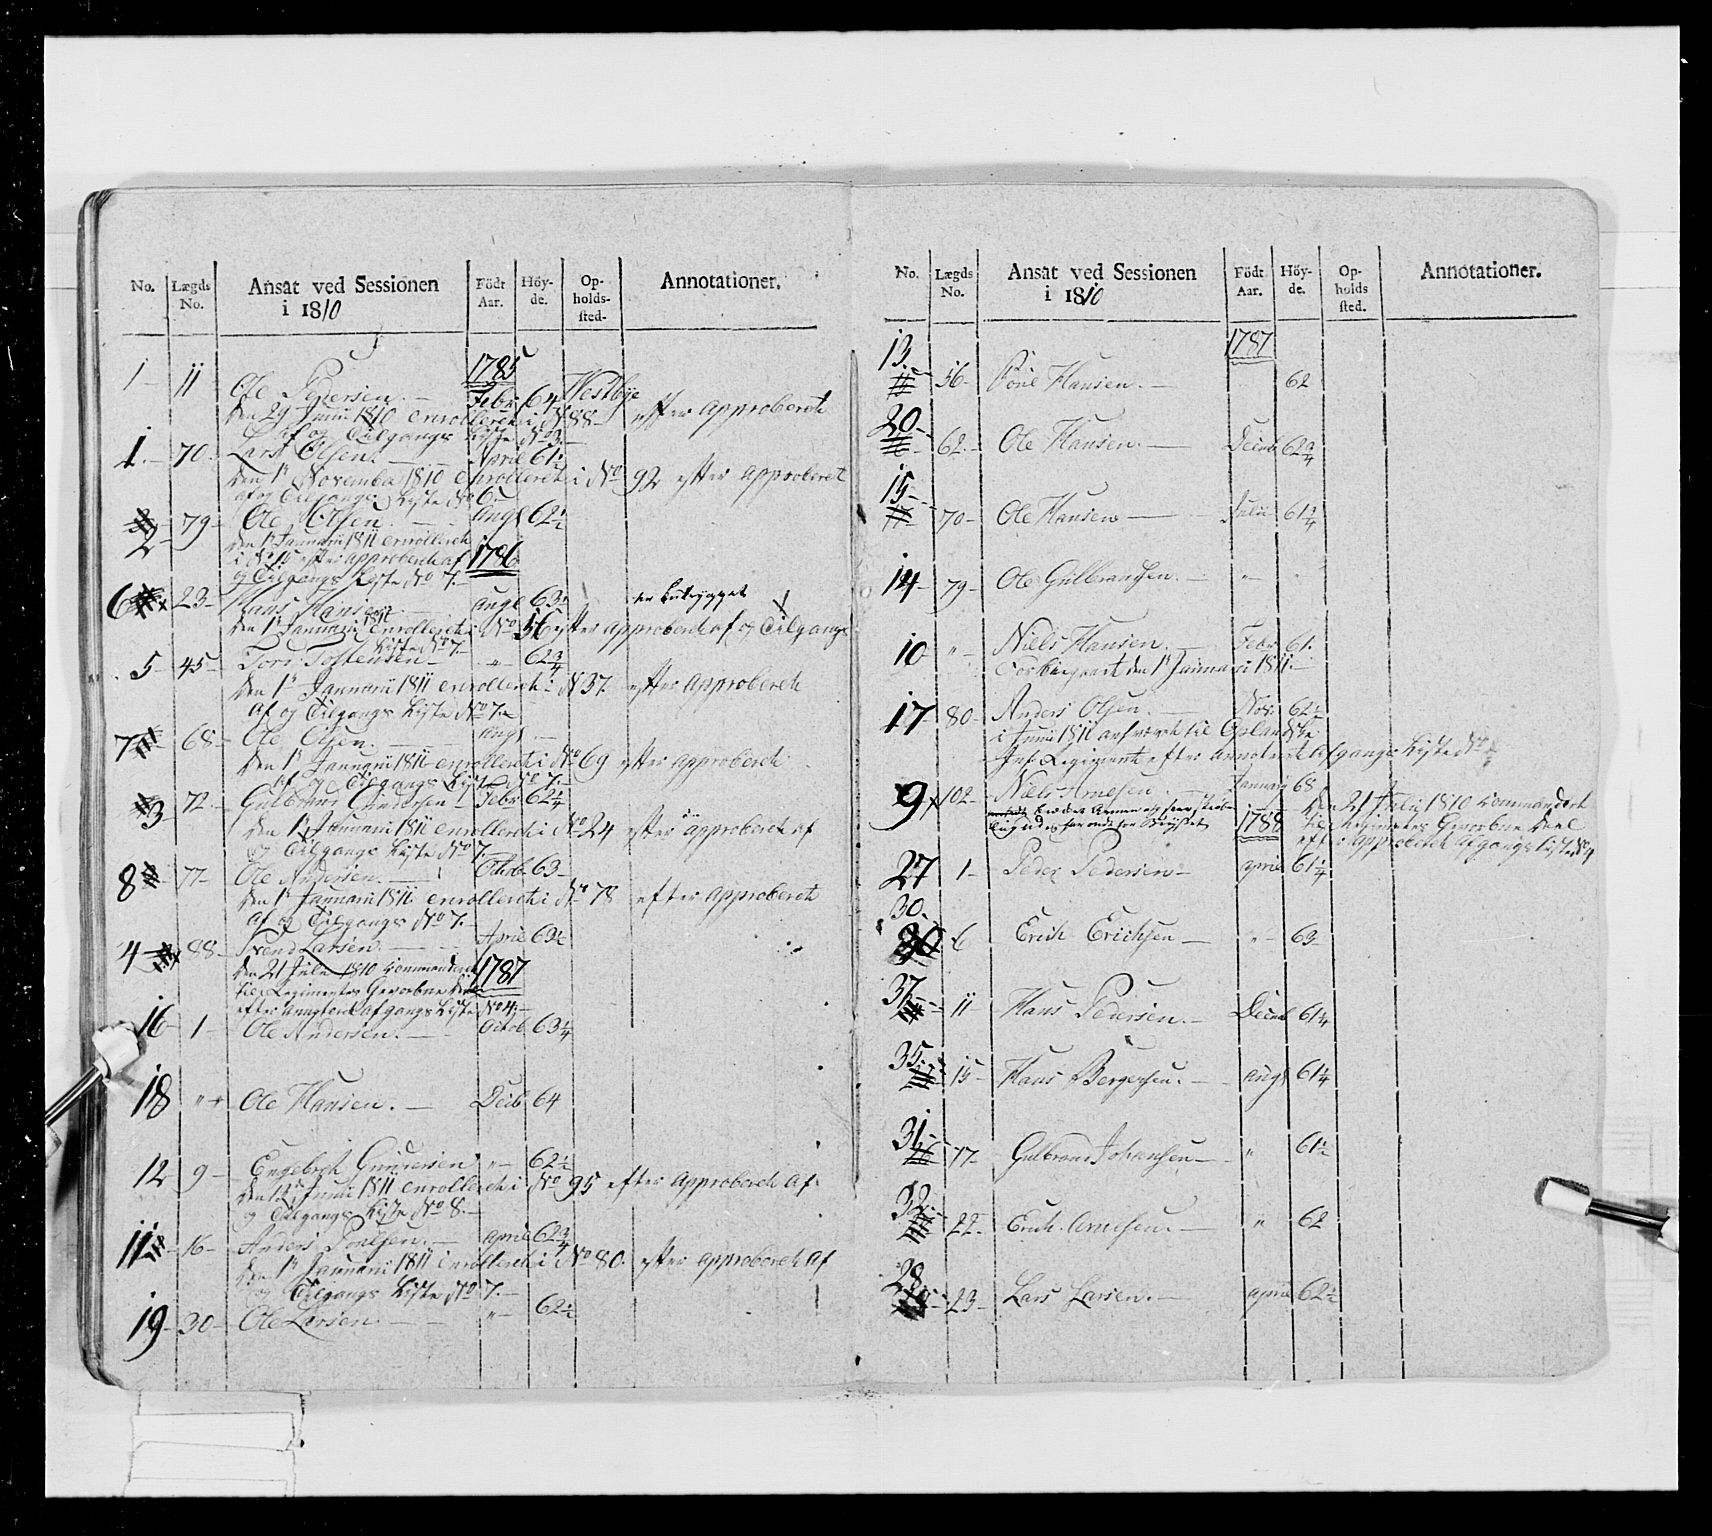 No. Lægds No. Ansat ved Sessionen i 1810 Födt Aar. Höy-de. Op-holds-sted. Annotationer.
1785
1 11 Ole Pedersen. Febr 64 Westbye
den 29 Junii 1810 enrolleret i No 88 efter approberet
af og Tilgangs Liste No 3.
1. 70. Lars Olsen. April 61½
den 1 November 1810 enrolleret i No 92 efter approberet
af og Tilgangs Liste No 6.
2 79 Ole Olsen. Aug 62½
den 1 Januarii 1811 enrolleret
i No 15 efter approberet af
og Tilgangs Liste No 7.
1786
6 23 Hans Hansen. Aug 63
den 1 Januarii 1811 enrolleret i No 56 efter approberet af og Tilgangs
Liste No 7.
5 45 Tori Tostensen " 62¾
den 1 Januarii 1811 enrolleret i No 37. efter approberet
af og Tilgangs Liste No 7.
7 68 Ole Olsen. Aug
den 1 Januarii 1811 enrolleret i No 69 efter approberet
af og Tilgangs Liste No 7.
3 72. Gulbrand Gundersen Febr 62¼
den 1 Januarii 1811 enrolleret i No 24 efter approberet af
og Tilgangs Liste No 7.
8 77 Ole Andersen. Octob 63
den 1 Januarii 1811 enrolleret i No 78 efter approberet
af og Tilgangs No 7.
4 88 Svend Larsen. April 63½
den 21 Julii 1810 Kommanderet
til Regimentes Gevorbne Deel
efter Afgangs Liste No 4.
1787
16 1 Ole Andersen. Octob 63¼
18 " Ole Hansen. Decb 64
12 9 Engebret Gundersen " 62½
den 12 Junii 1811 enrolleret i No 95 efter approberet af
og Tilgangs Liste No 8.
11 16 Anders Poulsen. April 62¾
den 1 Januarii 1811 enrolleret i No 80. efter approberet af
og Tilgangs Liste No 7.
19 30 Ole Larsen. " 62½
No. Lægds No. Ansat ved Sessionen i 1810 Födt Aar. Höy-de. Op-holds sted. Annotationer.
1787
13. 56 Poul Hansen. 62
20 62. Ole Hansen. Decmb 62¾
15 70 Ole Hansen Julii 61¾
14 79 Ole Gulbrandsen. "
10 " Niels Hansen. Febr 61.
den 1 Januarii 1811.
17 80 Anders Olsen. Nov. 62½
i Junii 1811 til Oplandske
Inf. Regiment efter Afgangs Liste No
9 102 Niels Arnesen. Januarii 68
den 21 Julii 1810 Kommanderet
til Regimentes Gevorbne Deel
efter Approberet Afgangs Liste No 4
1788
27 1 Peder Pedersen April 61¼
30.
30 6 Erich Erichsen " 63
37 11 Hans Pedersen. Decmb 61¼
35 15 Hans Bergersen. Aug 61¼
31 17 Gulbrand Johansen " 61½
32 22 Erich Arnesen. " 62
28 23 Lars Larsen. April 62½